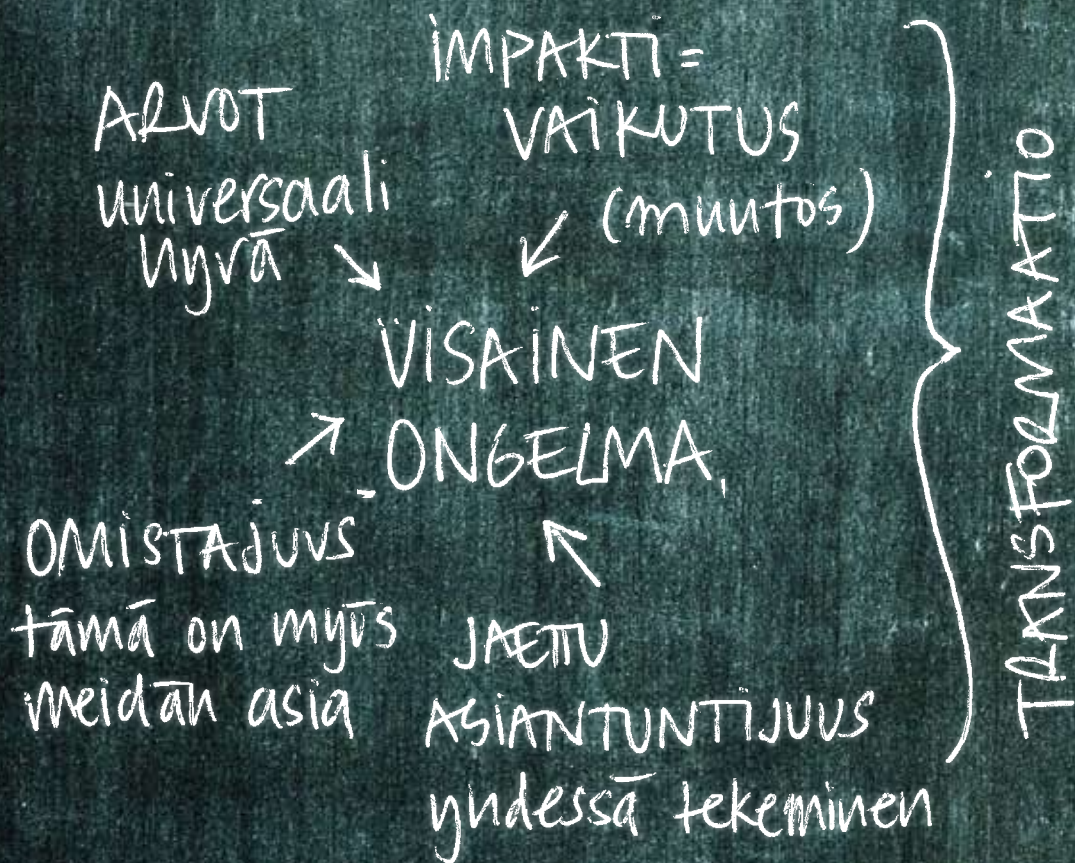 ARVOT
universaali
hyvä
iMPAKTi =
VAiKUTUS
(muutos)
ViSAiNEN
ONGELMA
OMiSTAJUUS
tämä on myös
meidän asia
JAETTU
ASiANTUNTiJUUS
yhdessä tekeminen
TRANSFORMAATIO